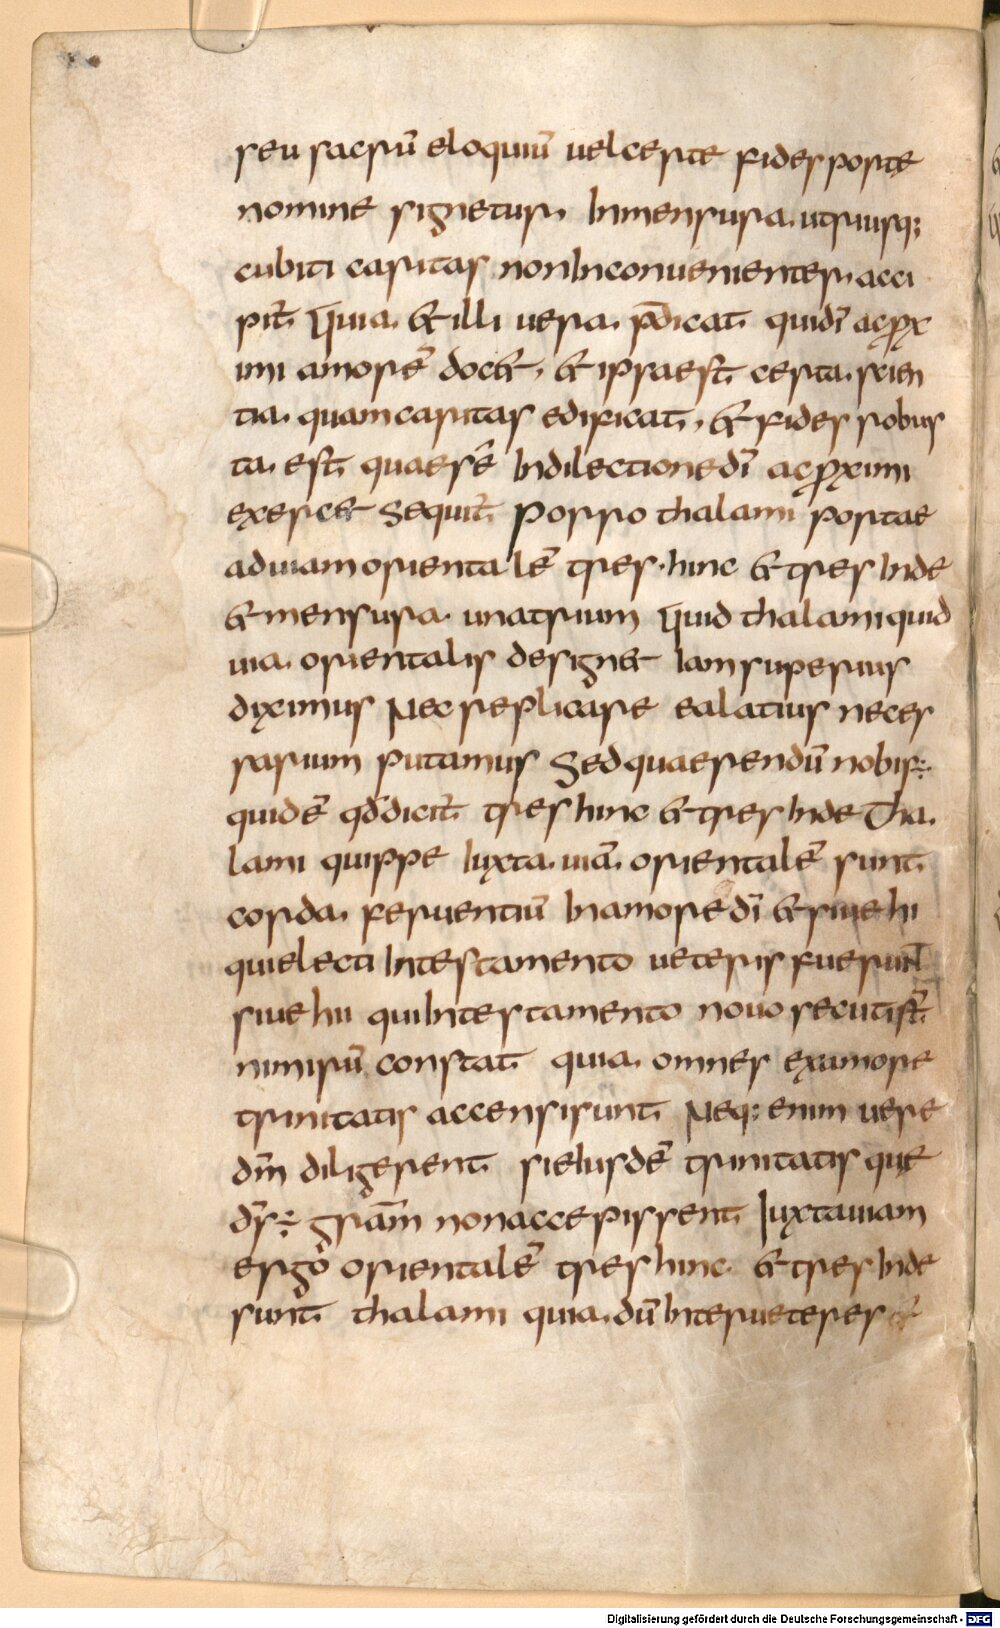 seu sacrū eloquiū uelcerte fides porte
nomine signetur, Inmensura, utriusq;
cubiti caritas nonInconuenienter, acci
pit̄ Quia, & illi uera, p̄dicat quidī acꝓx
imi amorē doc&, & ipsa est certa, scien
tia, quam caritas edificat, & fides robus
ta, est quaesē Indilectionedī acꝓximi
exerc& Sequit̄ Porro thalami portae
aduiamorientalē tres, hinc & tres Inde
& mensura, unatrium Quid thalami quid
uia, orientalis design& Iam superius
diximus Nec replicare ea latius neces
sarium putamus Sed quaerendū nobis ÷
quidē qđ dicit̄ tres hinc & tres Inde Tha,
lami quippe Iuxta, uiā, orientalē sunt
corda, feruentiū Inamore dī & siue hi
qui electi Intestamento ueteris fuerunt
siue hii qui Intestamento nouo secuti st̄
nimirū, constat quia, omnes examore
trinitatis accensi sunt Neq; enim uere
dm̄ diligerent si eiusdē trinitatis que
ds̄ ÷ grām̄ non accepissent Iuxta uiam
ergo orientalē tres hinc, & tres Inde
sunt thalami quia, dū Inter ueteres &
Digitalisierung gefördert durch die Deutsche Forschungsgemeinschaft - DFG